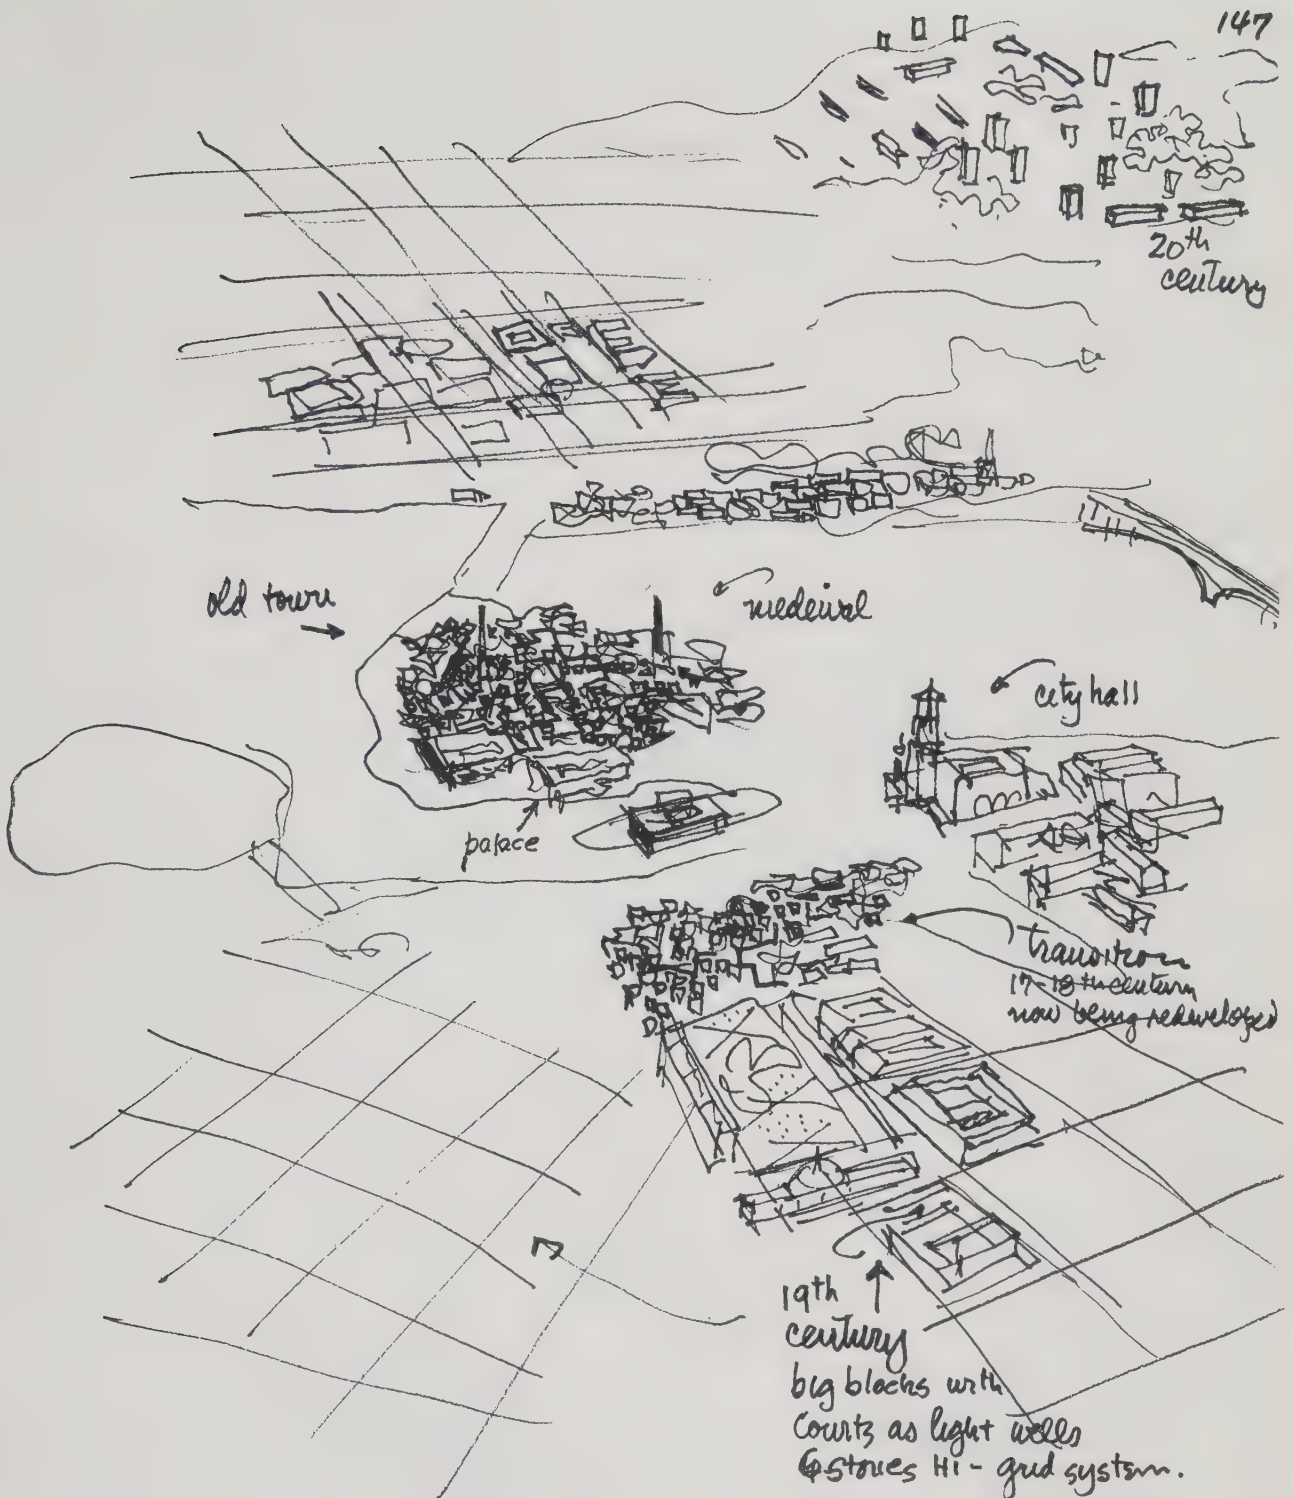 147
20th
century
old town
medeival
city hall
palace
transition
17-18th century
now being redeveloped
19th
century
big blocks with
courts as light wells
6 stories Hi - grid system.